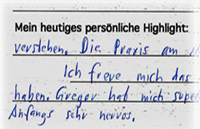 Mein heutiges persönliche Highlight:
verstehen. Die Praxis am
Ich freue mich das
haben. Gregor hat mich super
Anfangs sehr nervös.